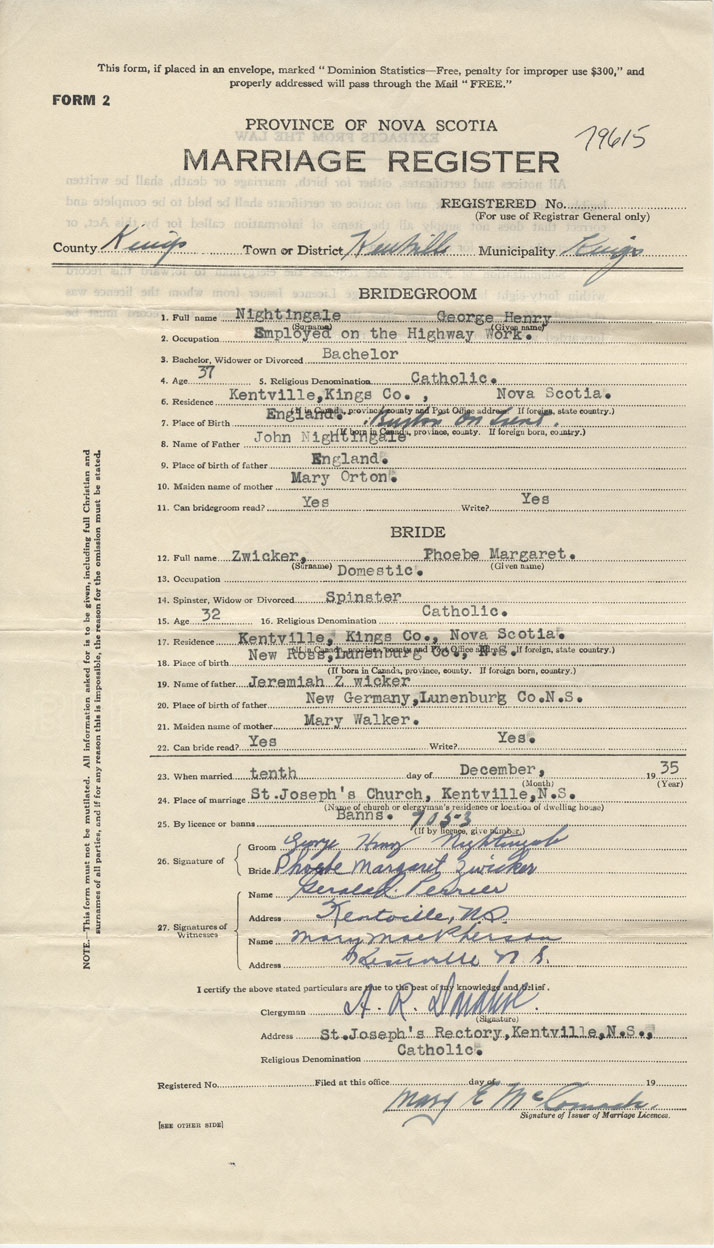 This form, if placed in an envelope, marked " Dominion Statistics—Free, penalty for improper use $300," and
properly addressed will pass through the Mail " FREE."
FORM 2
PROVINCE OF NOVA SCOTIA
79615
MARRIAGE REGISTER
REGISTERED No.
(For use of Registrar General only)
County Kings Town or District Kentville Municipality Kings
BRIDEGROOM
1. Full name Nightingale George Henry
(Surname) (Given name)
2. Occupation Employed on the Highway Work.
3. Bachelor, Widower or Divorced Bachelor
4. Age 37 5. Religious Denomination Catholic.
6. Residence Kentville,Kings Co., Nova Scotia.
(If in Canada, province, county and Post Office address. If foreign, state country.)
7. Place of Birth England. Burton On Trent.
(If born in Canada, province, county. If foreign born, country.)
8. Name of Father John Nightingale
9. Place of birth of father England.
10. Maiden name of mother Mary Orton.
11. Can bridegroom read? Yes Write? Yes
BRIDE
12. Full name Zwicker, Phoebe Margaret.
(Surname) (Given name)
13. Occupation Domestic.
14. Spinster, Widow or Divorced Spinster
15. Age 32 16. Religious Denomination Catholic.
17. Residence Kentville, Kings Co., Nova Scotia.
(If in Canada, province, county and Post Office address. If foreign, state country.)
18. Place of birth New Ross,Lunenburg Co., N.S.
(If born in Canada, province, county. If foreign born, country.)
19. Name of father Jeremiah Z wicker
20. Place of birth of father New Germany,Lunenburg Co.N.S.
21. Maiden name of mother Mary Walker.
22. Can bride read? Yes Write? Yes.
23. When married tenth day of December, 1935
(Month) (Year)
24. Place of marriage St.Joseph's Church, Kentville,N.S.
(Name of church or clergyman's residence or location of dwelling house)
25. By licence or banns Banns. 9053
(If by licence, give number.)
26. Signature of
Groom George Henry Nightingale
Bride Phoebe Margaret Zwicker
27. Signatures of Witnesses
Name Gerald Perrier
Address Kentville, N.S.
Name Mary MacPherson
Address Kentville N.S.
I certify the above stated particulars are true to the best of my knowledge and belief.
Clergyman A. R. Donahue.
(Signature)
Address St.Joseph's Rectory,Kentville,N.S.,
Religious Denomination Catholic.
Registered No. Filed at this office day of 19
Mary E McCormack.
Signature of Issuer of Marriage Licences.
[SEE OTHER SIDE]
NOTE.—This form must not be mutilated. All information asked for is to be given, including full Christian and
surnames of all parties, and if for any reason this is impossible, the reason for the omission must be stated.